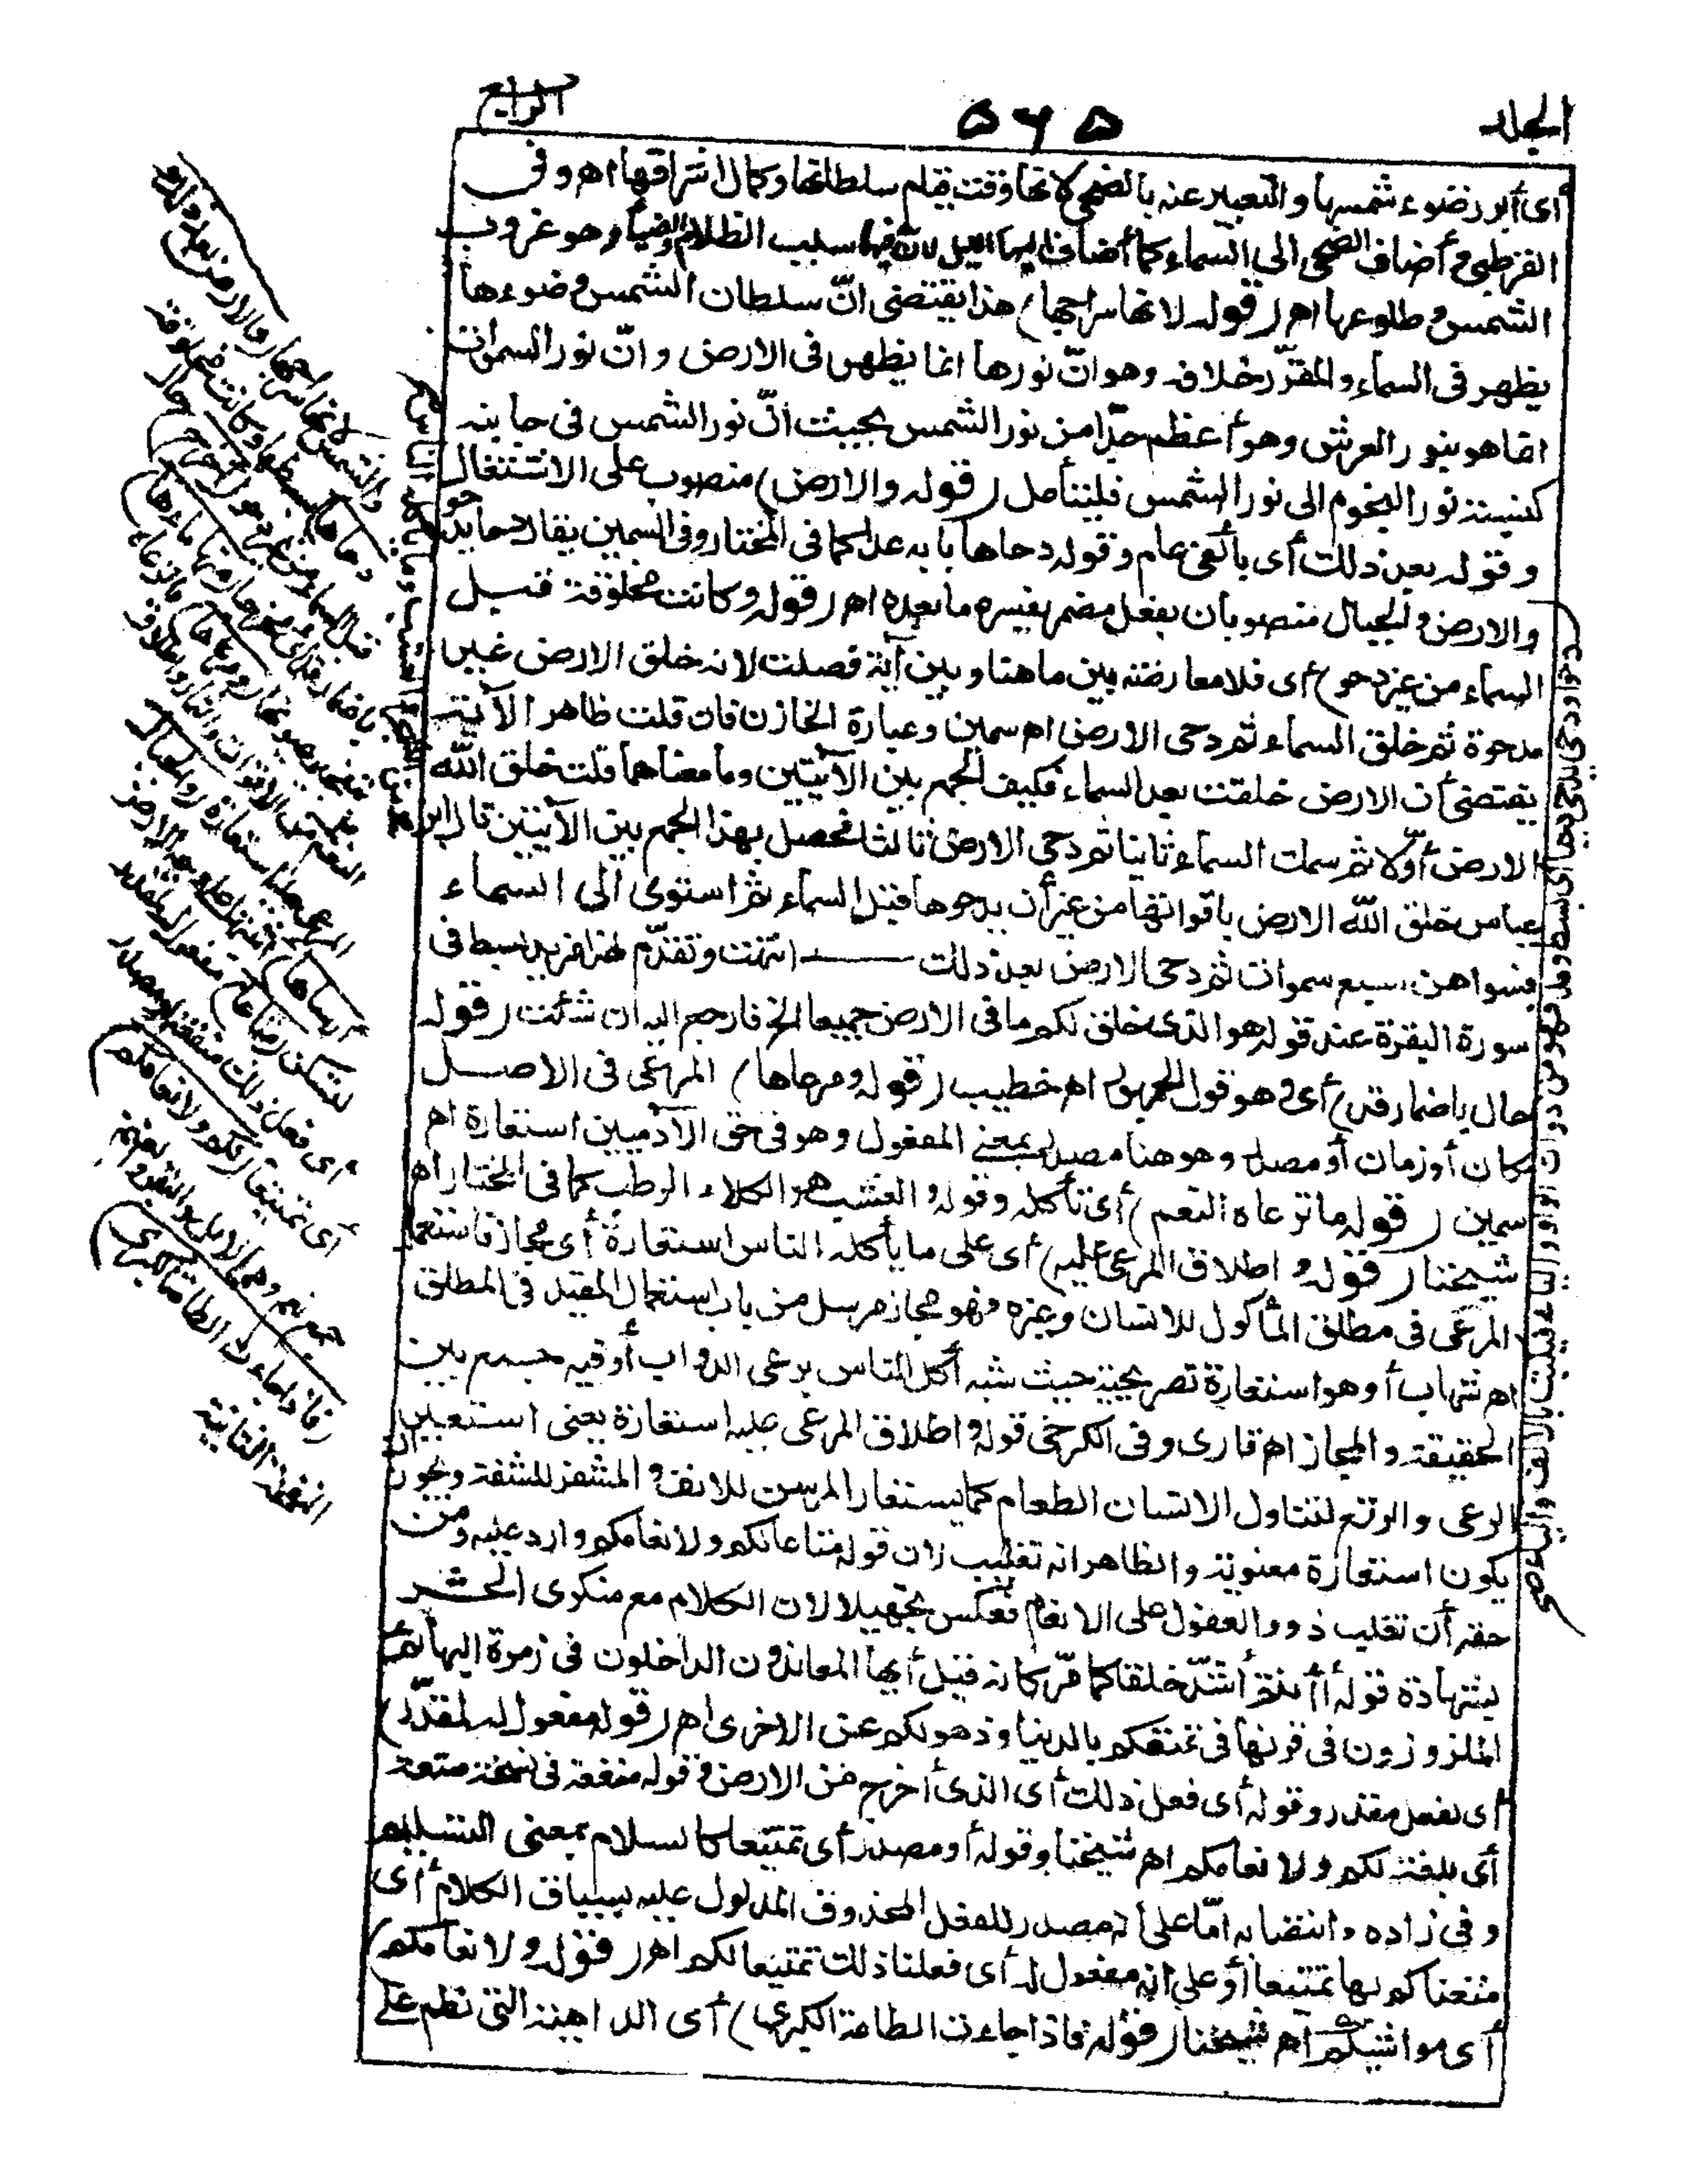 المجلد
٥٦٥
الرابع
أى أبرز ضوء شمسها والتعبير عنه بالضحى لانها وقت قيام سلطانها وكمال اشراقها اهـ وفى
القرطبى وأضاف الضحى الى السماء كما أضاف اليها الليل لان فيها سبب الظلام والضياء وهو غروب
الشمس وطلوعها اهـ (قوله لانها سراجها) هذا يقتضى انّ سلطان الشمس وضوءها
يظهر فى السماء والمقرّر خلافه وهو انّ نورها انما يظهر فى الارض وانّ نور السموات
انما هو بنور العرش وهو أعظم جدّا من نور الشمس بحيث انّ نور الشمس فى جانبه
كنسبة نور النجوم الى نور الشمس فليتأمل (قوله والارض) منصوب على الاشتغال
وقوله بعد ذلك أى بألفى عام وقوله دحاها بابه عدا كما فى المختار وفى السمين يقال دحا يدحو
والارض والجبال منصوبان بفعل مضمر يفسره ما بعده اهـ (قوله وكانت مخلوقة قبل
السماء من غير دحو) أى فلا معارضة بين ما هنا وبين آية فصلت لانه خلق الارض غير
مدحوة ثم خلق السماء ثم دحى الارض اهـ سمين وعبارة الخازن فان قلت ظاهر الآية
يقتضى أن الارض خلقت بعد السماء فكيف الجمع بين الآيتين وما معناهما قلت خلق الله
الارض أوّلا ثم سمك السماء ثانيا ثم دحى الارض ثالثا فحصل بهذا الجمع بين الآيتين قال ابن
عباس خلق الله الارض باقواتها من غير أن يدحوها قبل السماء ثم استوى الى السماء
فسواهن سبع سموات ثم دحى الارض بعد ذلك انتهت وتقدّم لهذا مزيد بسط فى
سورة البقرة عند قوله هو الذى خلق لكم ما فى الارض جميعا الخ فارجع اليه ان شئت (قوله
حال باضمار قد) أى وهو قول الجمهور اهـ خطيب (قوله ومرعاها) المرعى فى الاصل
مكان أو زمان أو مصدر وهو هنا مصدر بمعنى المفعول وهو فى حق الآدميين استعارة اهـ
سمين (قوله ما ترعاه النعم) أى تأكله وقوله والعشب هو الكلاء الرطب كما فى المختار اهـ
شيخنا (قوله واطلاق المرعى عليه) أى على ما يأكله الناس استعارة أى مجاز فاستعمل
المرعى فى مطلق المأكول للانسان وغيره فهو مجاز مرسل من باب استعمال المقيد فى المطلق
اهـ شهاب أو هو استعارة تصريحية حيث شبه أكل الناس برعى الدواب أو فيه جمع بين
الحقيقة والمجاز اهـ قارى وفى الكرخى قوله واطلاق المرعى عليه استعارة يعنى استعير
الرعى والرتع لتناول الانسان الطعام كما يستعار المرسن للانف والمشفر للشفة ويجوز أن
يكون استعارة معنوية والظاهر انه تغليب لان قوله متاعا لكم ولانعامكم وارد عليه ومن
حقه أن تغليب ذوو العقول على الانعام فعكس تجهيلا لان الكلام مع منكرى الحشر
بشهادة قوله أأنتم أشدّ خلقا كما مرّ كانه قيل أيها المعاندون الداخلون فى زمرة البهائم
الملزوزون فى قرنها فى تمتعكم بالدنيا وذهولكم عن الاخرى اهـ (قوله مفعول له لمقدّر)
أى لفعل مقدر وقوله أى فعل ذلك أى الذى أخرج من الارض وقوله منفعة فى نسخة متعة
أى بلغة لكم ولانعامكم اهـ شيخنا وقوله أو مصدر أى تمتيعا كالسلام بمعنى التسليم
وفى زاده وانتصابه امّا على أنه مصدر للفعل المحذوف المدلول عليه بسياق الكلام أى
متعناكم بها تمتيعا أو على انه مفعول له أى فعلنا ذلك تمتيعا لكم اهـ (قوله ولانعامكم)
أى مواشيكم اهـ شيخنا (قوله فاذا جاءت الطامة الكبرى) أى الداهية التى تطم على
قبل السماء من غير دحو (أخرج) حال
باضمار قد أى مخرجا (منها ماءها)
بتفجير عيونها (ومرعاها) ما ترعاه
(أرساها) أثبتها على وجه الارض
لتسكن (متاعا) مفعول له لمقدر
أى فعل ذلك متعة أو مصدر
أى تمتيعا (لكم ولانعامكم)
جمع نعم وهى الابل والبقر والغنم
(فاذا جاءت الطامة الكبرى)
النفخة الثانية